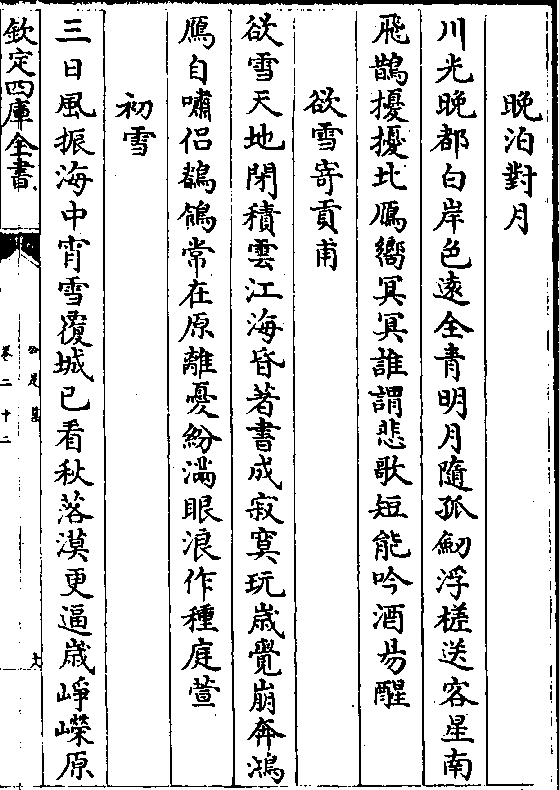 晚泊對月
川光晚都白岸色遠全青明月隨孤劒浮槎送客星南
飛鵲擾擾北鴈嚮冥冥誰謂悲歌短能吟酒易醒
欲雪寄貢甫
欲雪天地閉積雲江海昏著書成寂寞玩歲覺崩奔鴻
鴈自嘯侣鶺鴒常在原離憂紛滿眼浪作種庭萱
初雪
三日風振海中宵雪覆城已看秋落漠更逼歲崢嶸原
欽定四庫全書
公是集
卷二十二